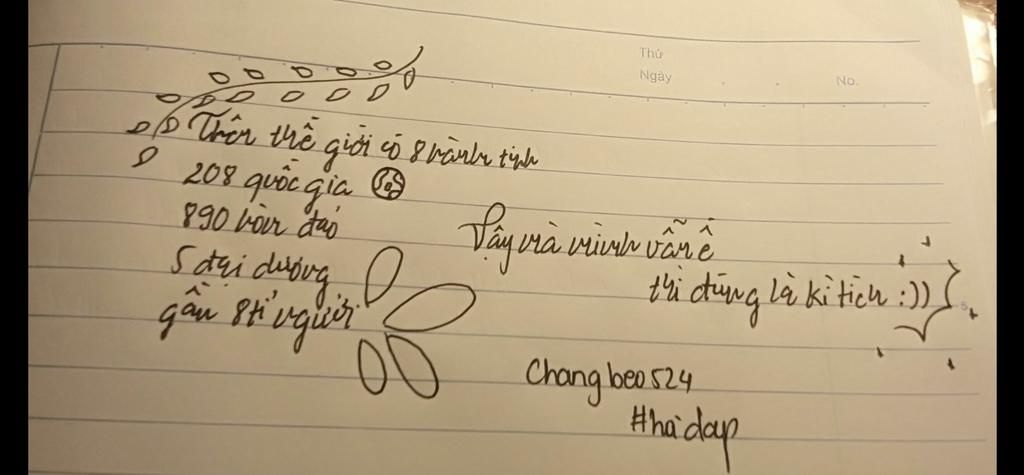 Thứ
Ngày
No.
Trên thế giới có 8 hành tinh
208 quốc gia
890 hòn đảo
5 đại dương
gần 8 tỉ người
Vậy mà mình vẫn ế
thì đúng là kì tích :))
Changbeo524
#hàdap